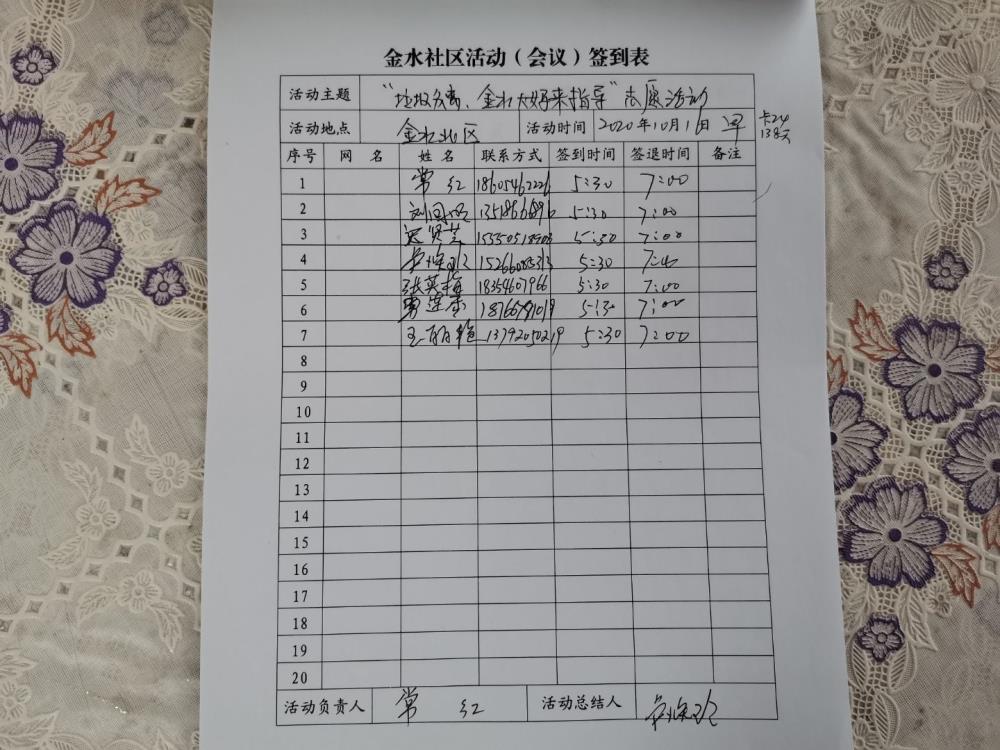 金水社区活动(会议)签到表
活动主题 "垃圾分离、金水大好来指导"志愿活动
活动地点 金水社区 活动时间 2020年10月1日 早
卡24
138次
序号 网 名 姓 名 联系方式 签到时间 签退时间 备注
1 常 红 18605462226 5:30 7:00
2 5:30 7:00
3 5:30 7:00
4 5:30
5 张英梅 18354607966 5:30 7:00
6 5:30 7:00
7 王丽艳 13792050219 5:30 7:00
8
9
10
11
12
13
14
15
16
17
18
19
20
活动负责人 常 红 活动总结人